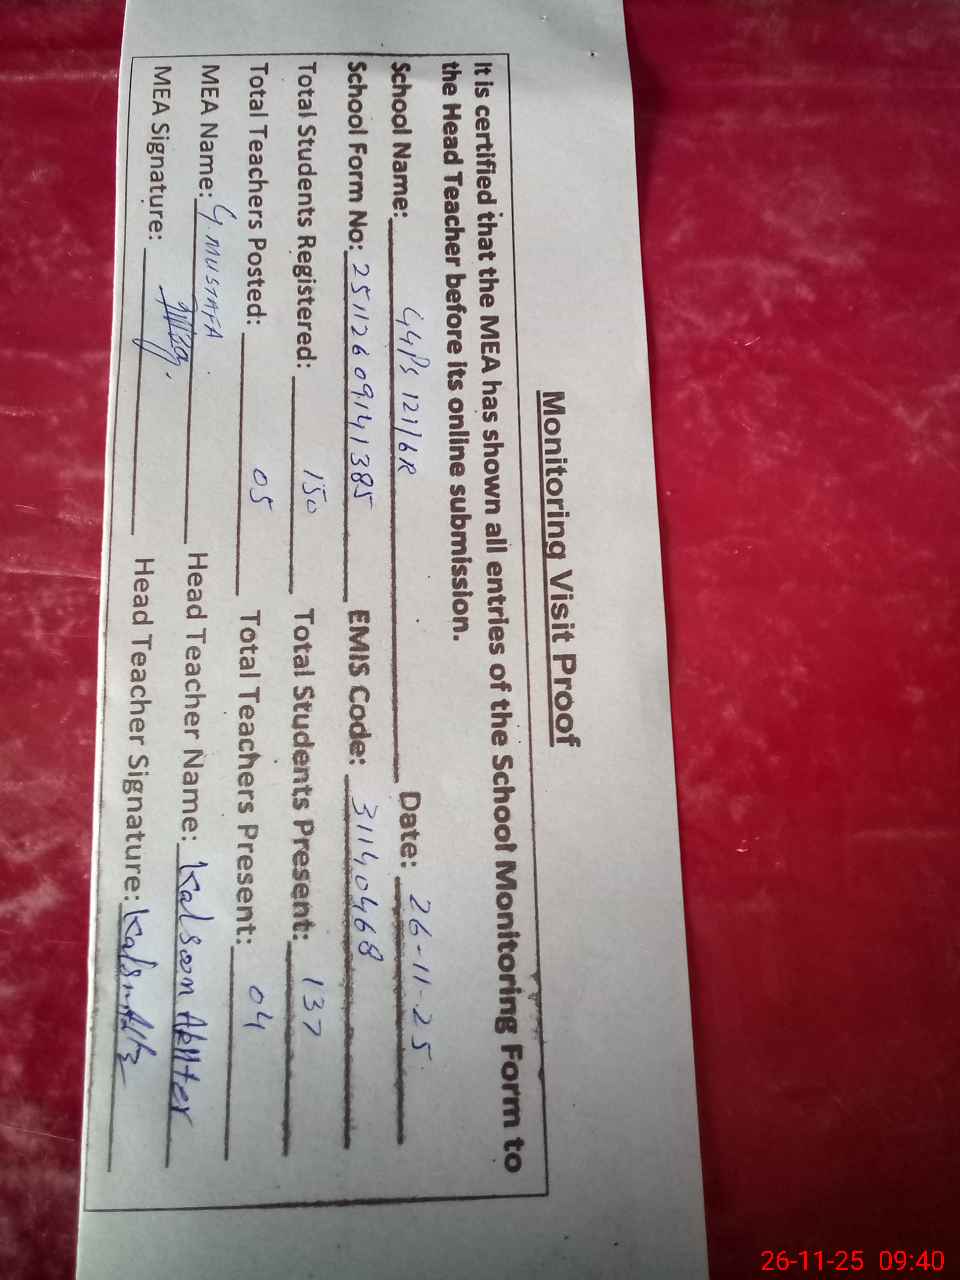 Monitoring Visit Proof
It is certified that the MEA has shown all entries of the School Monitoring Form to
the Head Teacher before its online submission.
School Name: GGPS 121/6R Date: 26-11-25
School Form No: 25112609141385 EMIS Code: 31140468
Total Students Registered: 150 Total Students Present: 137
Total Teachers Posted: 05 Total Teachers Present: 04
MEA Name: G. MUSTAFA Head Teacher Name: Kalsoon Akhter
MEA Signature: Head Teacher Signature:
26-11-25 09:40